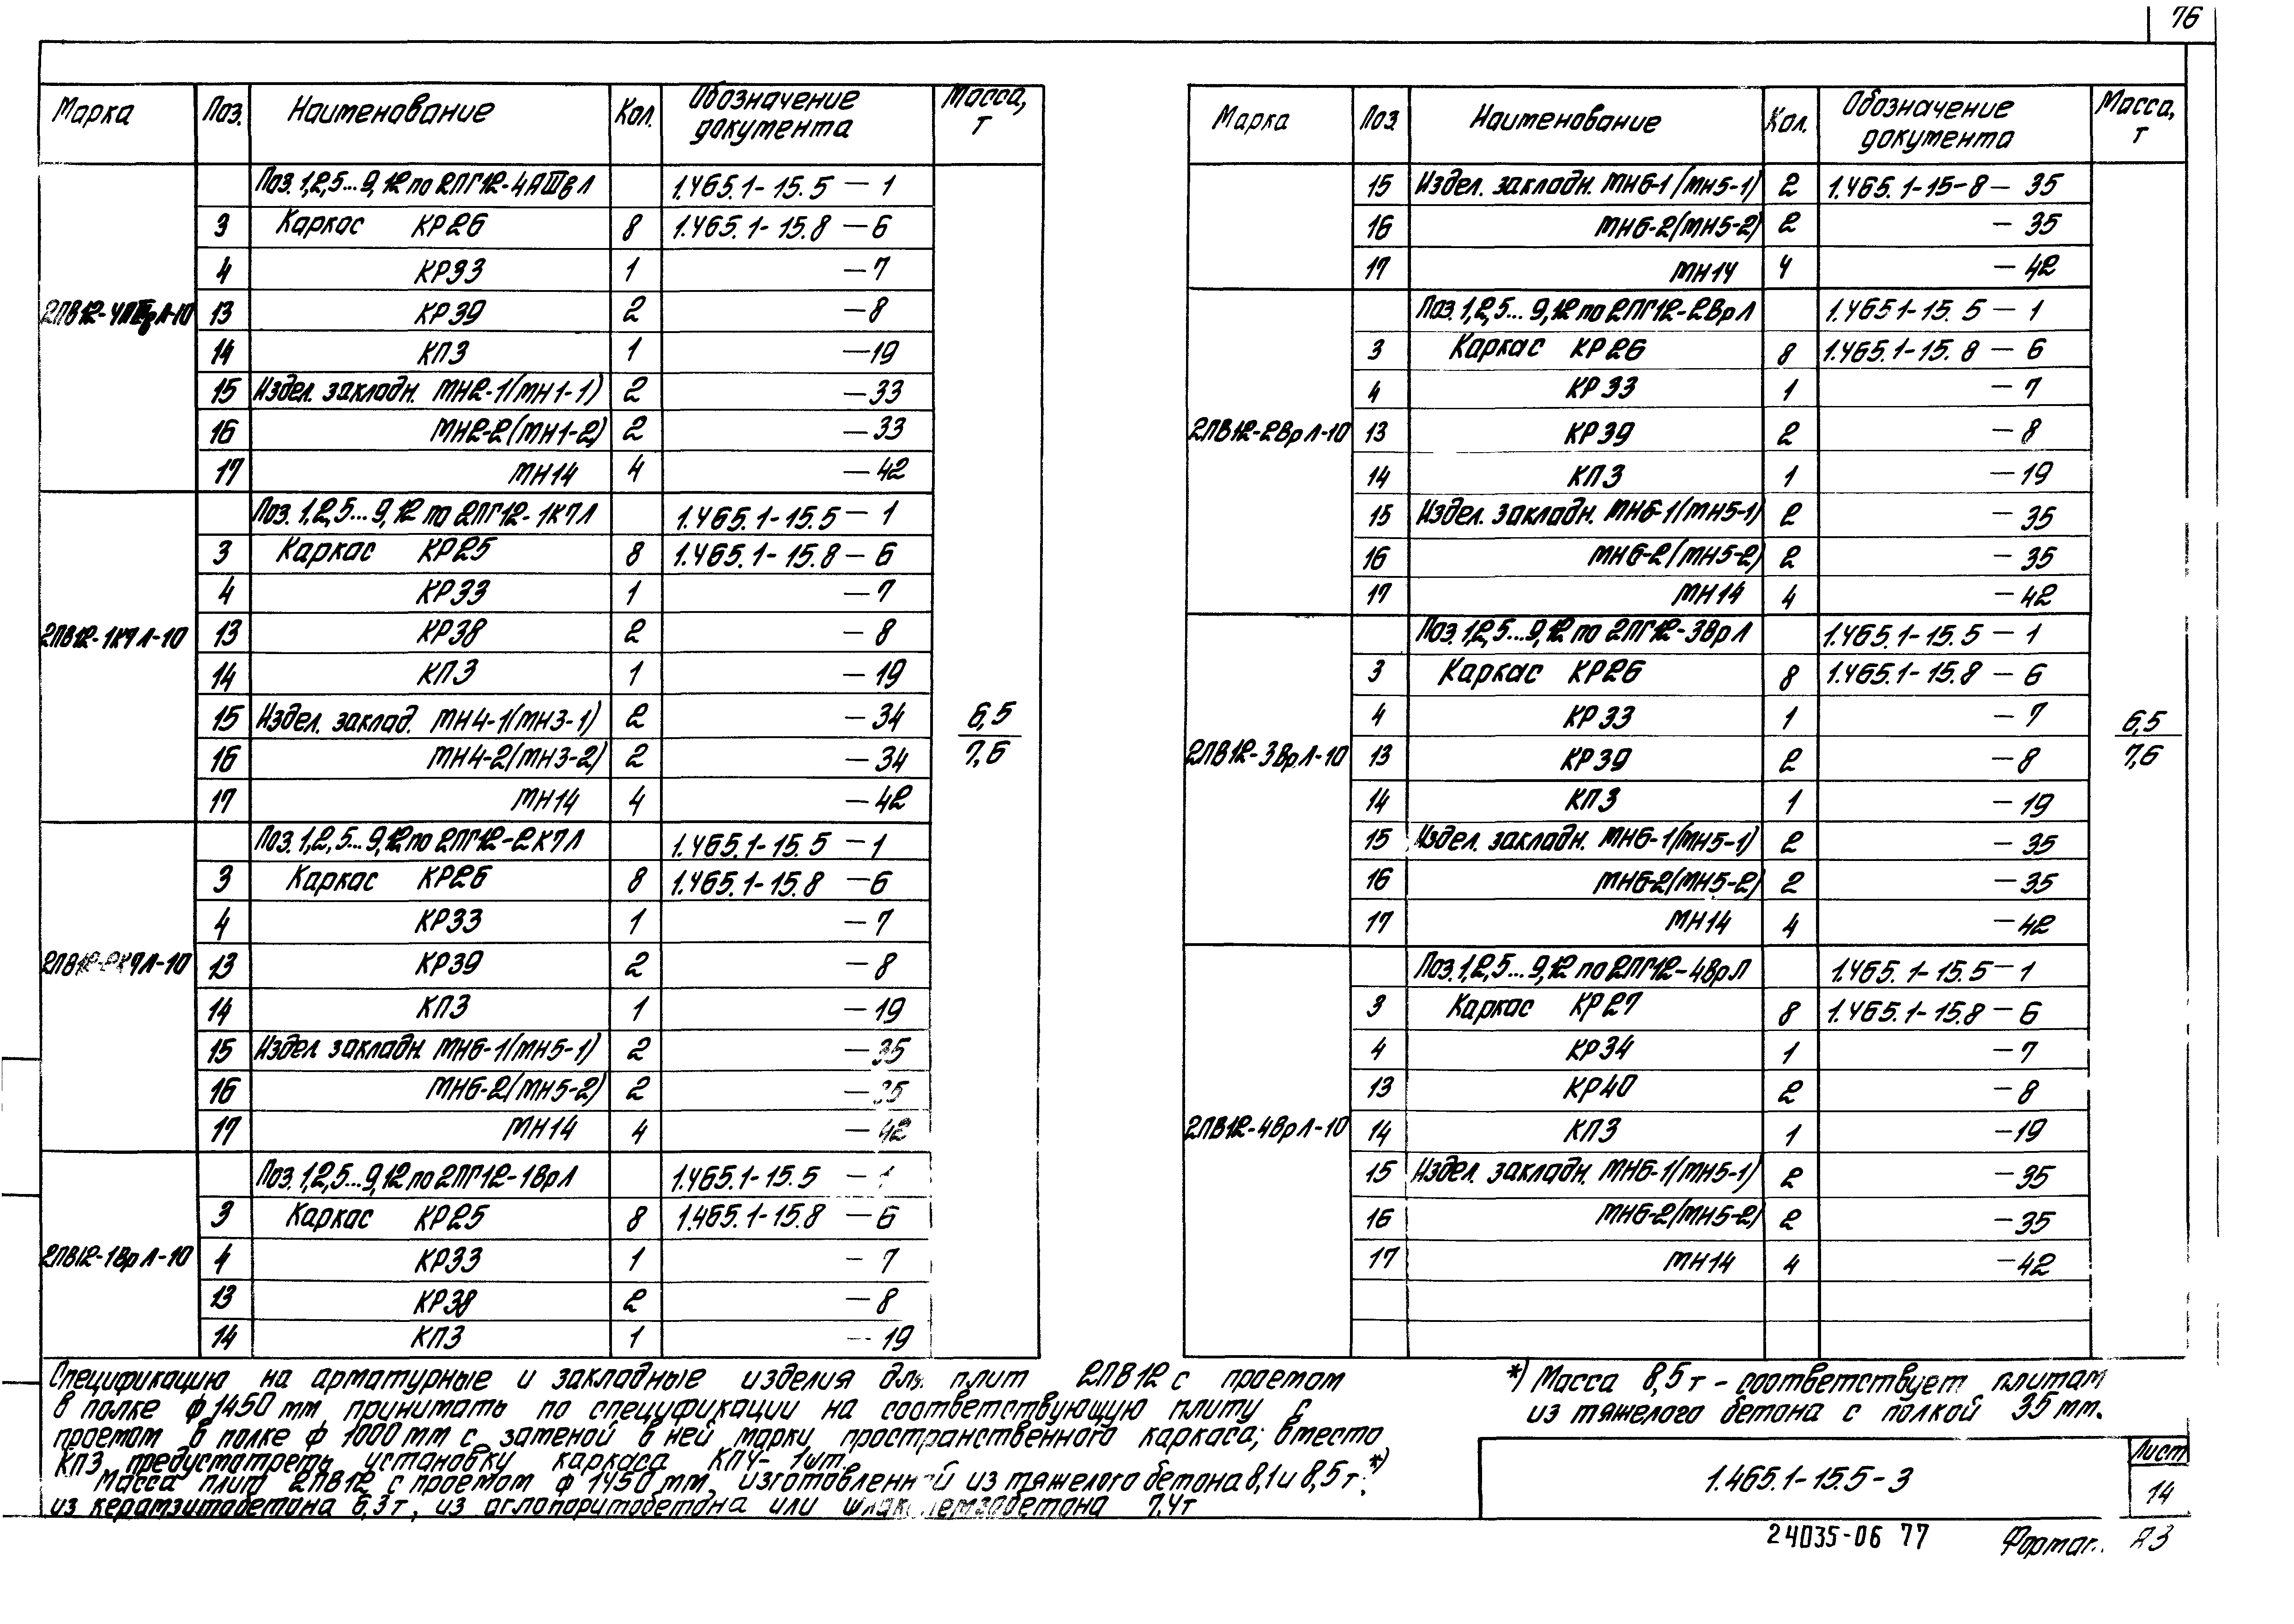 76
Марка Поз. Наименование Кол. Обозначение документа Масса, т
Поз. 1,2,5...9,12 по 2ПГ12-4АШвЛ 1.465.1-15.5 — 1
3 Каркас КР26 8 1.465.1-15.8 — 6
4 КР33 1 — 7
2ПВ12-4АШвЛ-10 13 КР39 2 — 8
14 КП3 1 — 19
15 Издел. закладн. МН2-1(МН1-1) 2 — 33
16 МН2-2(МН1-2) 2 — 33
17 МН14 4 — 42
Поз. 1,2,5...9,12 по 2ПГ12-1К7Л 1.465.1-15.5 — 1
3 Каркас КР25 8 1.465.1-15.8 — 6
4 КР33 1 — 7
2ПВ12-1К7Л-10 13 КР38 2 — 8
14 КП3 1 — 19
15 Издел. заклад. МН4-1(МН3-1) 2 — 34
16 МН4-2(МН3-2) 2 — 34
17 МН14 4 — 42
6,5
7,6
Поз. 1,2,5...9,12 по 2ПГ12-2К7Л 1.465.1-15.5 — 1
3 Каркас КР26 8 1.465.1-15.8 — 6
4 КР33 1 — 7
2ПВ12-2К7Л-10 13 КР39 2 — 8
14 КП3 1 — 19
15 Издел. закладн. МН6-1(МН5-1) 2 — 35
16 МН6-2(МН5-2) 2 — 35
17 МН14 4 — 42
Поз. 1,2,5...9,12 по 2ПГ12-1ВрЛ 1.465.1-15.5 — 1
3 Каркас КР25 8 1.465.1-15.8 — 6
2ПВ12-1ВрЛ-10 4 КР33 1 — 7
13 КР38 2 — 8
14 КП3 1 — 19
Марка Поз. Наименование Кол. Обозначение документа Масса, т
15 Издел. закладн. МН6-1(МН5-1) 2 1.465.1-15-8 — 35
16 МН6-2(МН5-2) 2 — 35
17 МН14 4 — 42
Поз. 1,2,5...9,12 по 2ПГ12-2ВрЛ 1.465 1-15. 5 — 1
3 Каркас КР26 8 1.465.1-15. 8 — 6
4 КР33 1 — 7
2ПВ12-2ВрЛ-10 13 КР39 2 — 8
14 КП3 1 — 19
15 Издел. закладн. МН6-1(МН5-1) 2 — 35
16 МН6-2(МН5-2) 2 — 35
17 МН14 4 — 42
Поз. 1,2,5...9,12 по 2ПГ12-3ВрЛ 1.465.1-15.5 — 1
3 Каркас КР26 8 1.465.1-15.8 — 6
4 КР33 1 — 7
2ПВ12-3ВрЛ-10 13 КР39 2 — 8
14 КП3 1 — 19
15 Издел. закладн. МН6-1(МН5-1) 2 — 35
16 МН6-2(МН5-2) 2 — 35
17 МН14 4 — 42
6,5
7,6
Поз. 1,2,5...9,12 по 2ПГ12-4ВрЛ 1.465.1-15.5 — 1
3 Каркас КР27 8 1.465.1-15.8 — 6
4 КР34 1 — 7
13 КР40 2 — 8
2ПВ12-4ВрЛ-10 14 КП3 1 — 19
15 Издел. закладн. МН6-1(МН5-1) 2 — 35
16 МН6-2(МН5-2) 2 — 35
17 МН14 4 — 42
Спецификацию на арматурные и закладные изделия для плит 2ПВ12 с проемом
в полке ф 1450 мм принимать по спецификации на соответствующую плиту с
проемом в полке ф 1000 мм с заменой в ней марки пространственного каркаса; вместо
КП3 предусмотреть установку каркаса КП4 - 1шт.
Масса плит 2ПВ12 с проемом ф 1450 мм, изготовленной из тяжелого бетона 8,1 и 8,5 т *),
из керамзитобетона 6,3 т, из аглопоритобетона или шлакопемзобетона 7,4 т
*) Масса 8,5 т - соответствует плитам
из тяжелого бетона с полкой 35 мм.
1.465.1-15.5-3
Лист
14
24035-06 77
Формат А3